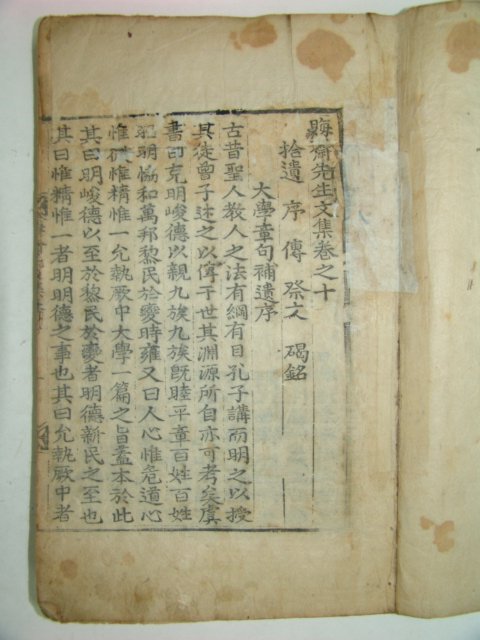 晦齋先生文集卷之十
拾遺 序 傳 祭文 碣銘
大學章句補遺序
古昔聖人教人之法有綱有目孔子講而明之以授
其徒曾子述之以傳于世其淵源所自亦可考矣虞
書曰克明峻德以親九族九族旣睦平章百姓百姓
昭明協和萬邦黎民於變時雍又曰人心惟危道心
惟微惟精惟一允執厥中大學一篇之旨盖本於此
其曰明峻德以至於黎民於變者明德新民之至也
其曰惟精惟一者明明德之事也其曰允執厥中者